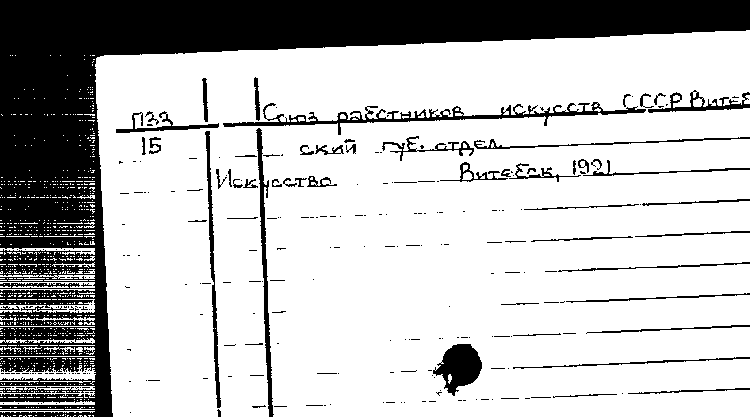 ПЗЗ Союз работников искусств СССР Витеб
15 ский губ. отдел.
Искусство Витебск, 1921